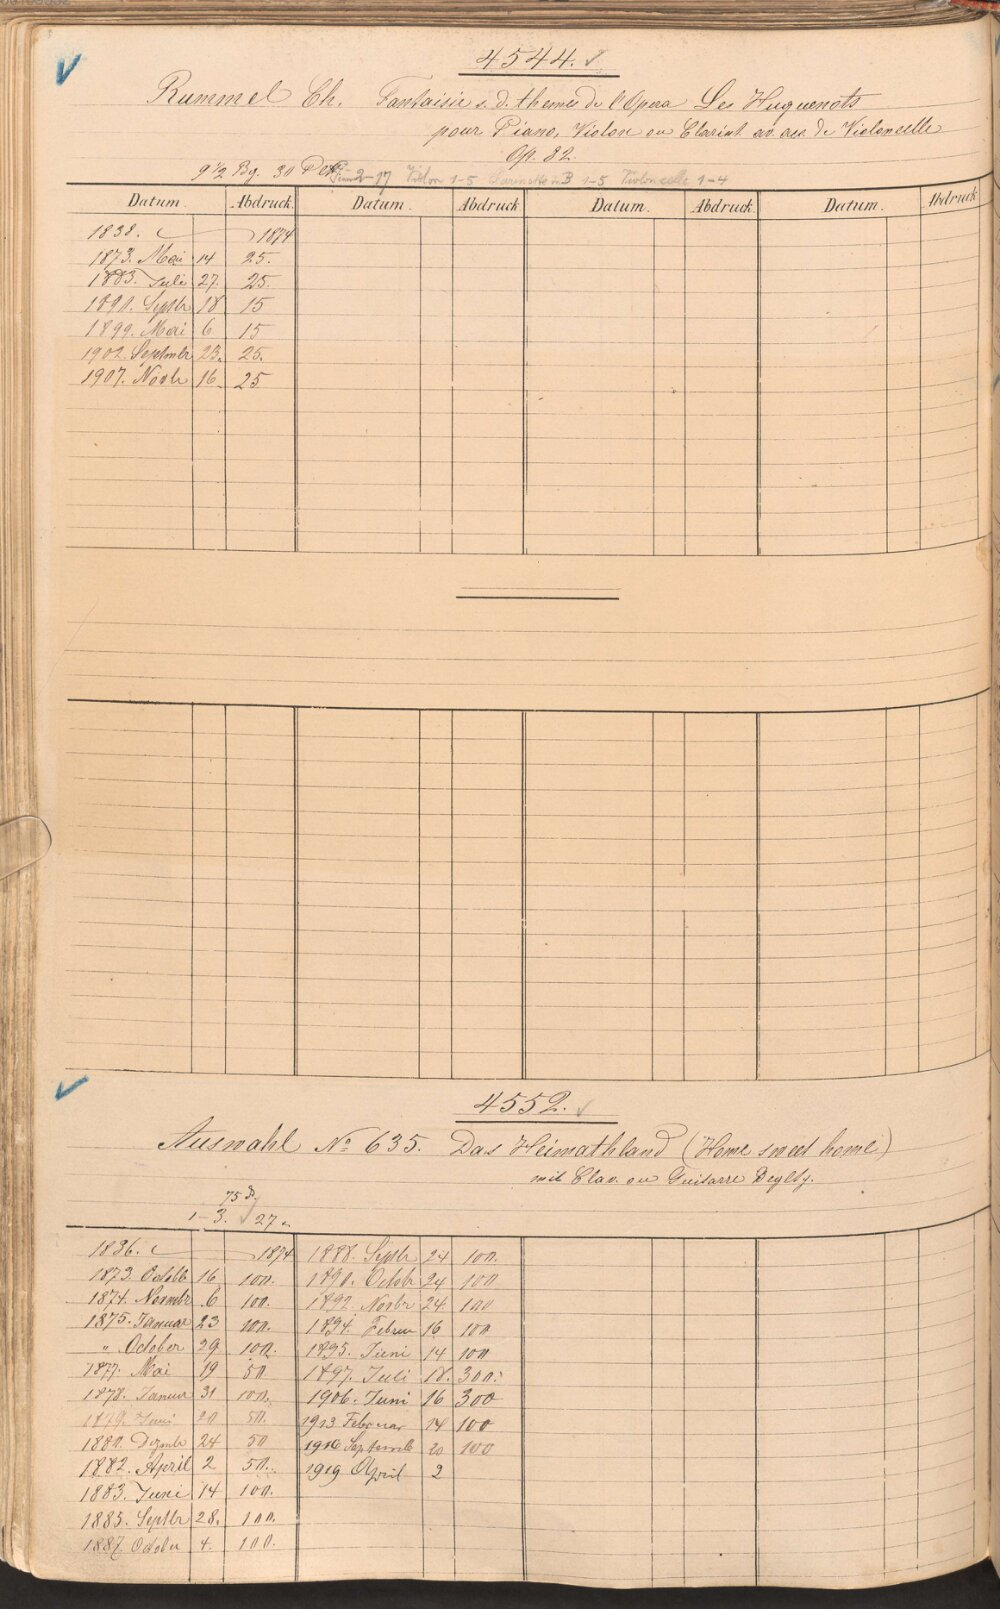 4544.
Rummel Ch. Fantaisie s. d. themes de l'Opera Les Huguenots
pour Piano, Violon ou Clarint av acc de Violoncelle
Op. 82.
9 1/2 Bg. 30 Pl. 2-17 Violon 1-5 Clarinette in B 1-5 Violoncelle 1-4
Datum. Abdruck Datum. Abdruck Datum. Abdruck. Datum. Abdruck
1838. 1874
1873. Mai 14 25.
1883. Juli 27. 25.
1890. Septbr 18 15
1899. Mai 6 15
1902. Septmbr 23. 25.
1907. Novbr 16. 25
4552.
Auswahl No 635. Das Heimathland (Home sweet home)
mit Clav. ou Guitarre Begltg.
75
1-3. 27
1836. 1874 1888. Septbr 24 100.
1873. Octbr 16 100. 1890. Octbr 24 100
1874. Novmbr 6 100. 1892. Novbr 24 100
1875. Januar 23 100. 1894. Februar 16 100
" October 29 100. 1895. Juni 14 100
1877. Mai 19 50. 1897. Juli 18. 300.
1878. Januar 31 100. 1906. Juni 16 300
1879. Juni 20 50. 1913 Februar 14 100
1880. Dezmbr 24 50 1916 Septemb 20 100
1882. April 2 50. 1919 April 2
1883. Juni 14 100.
1885. Septbr 28. 100.
1887. October 4. 100.